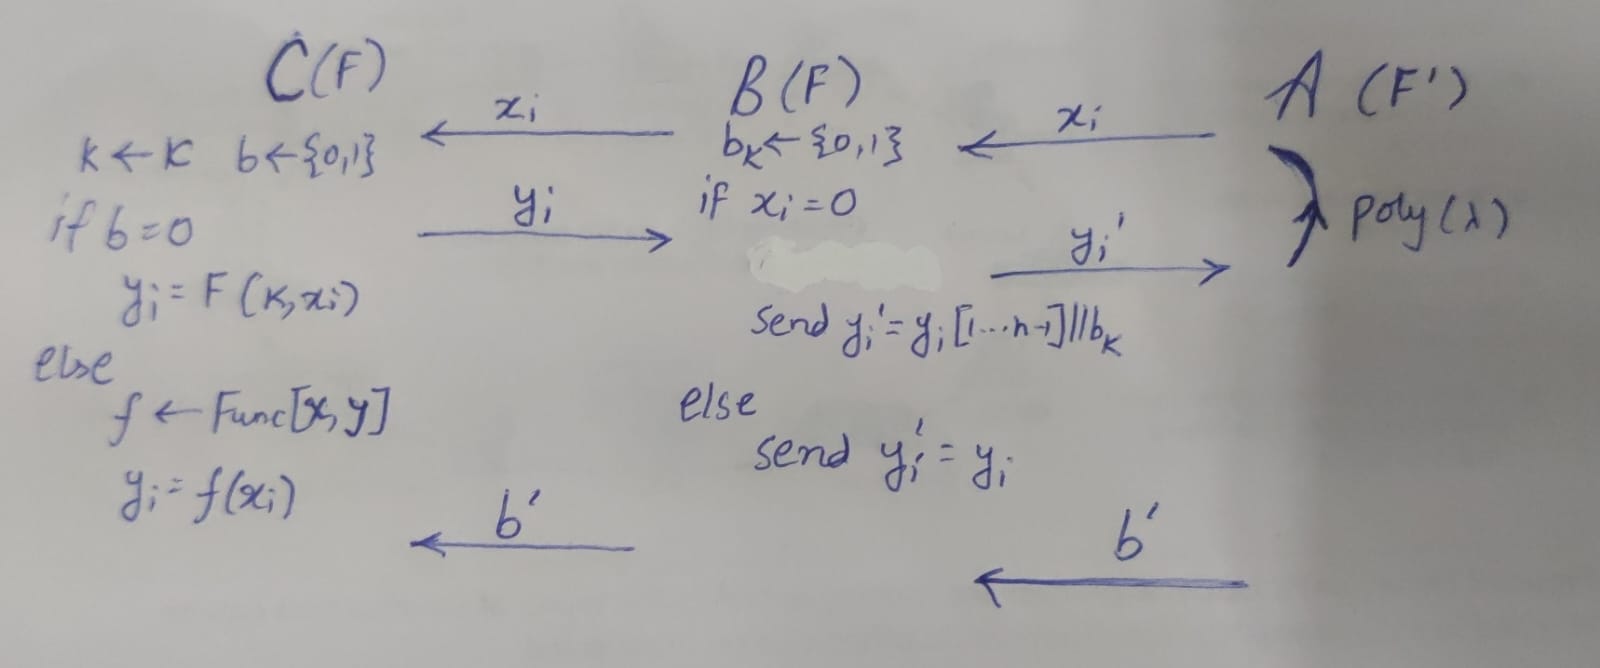 C(F)
k ← K b ← {0,1}
if b = 0
yᵢ = F(K, xᵢ)
else
f ← Func[x, y]
yᵢ = f(xᵢ)
xᵢ
yᵢ
b'
B(F)
b_K ← {0,1}
if xᵢ = 0
send yᵢ' = yᵢ[1...n-1]||b_K
else
send yᵢ' = yᵢ
xᵢ
yᵢ'
b'
A (F')
poly(λ)